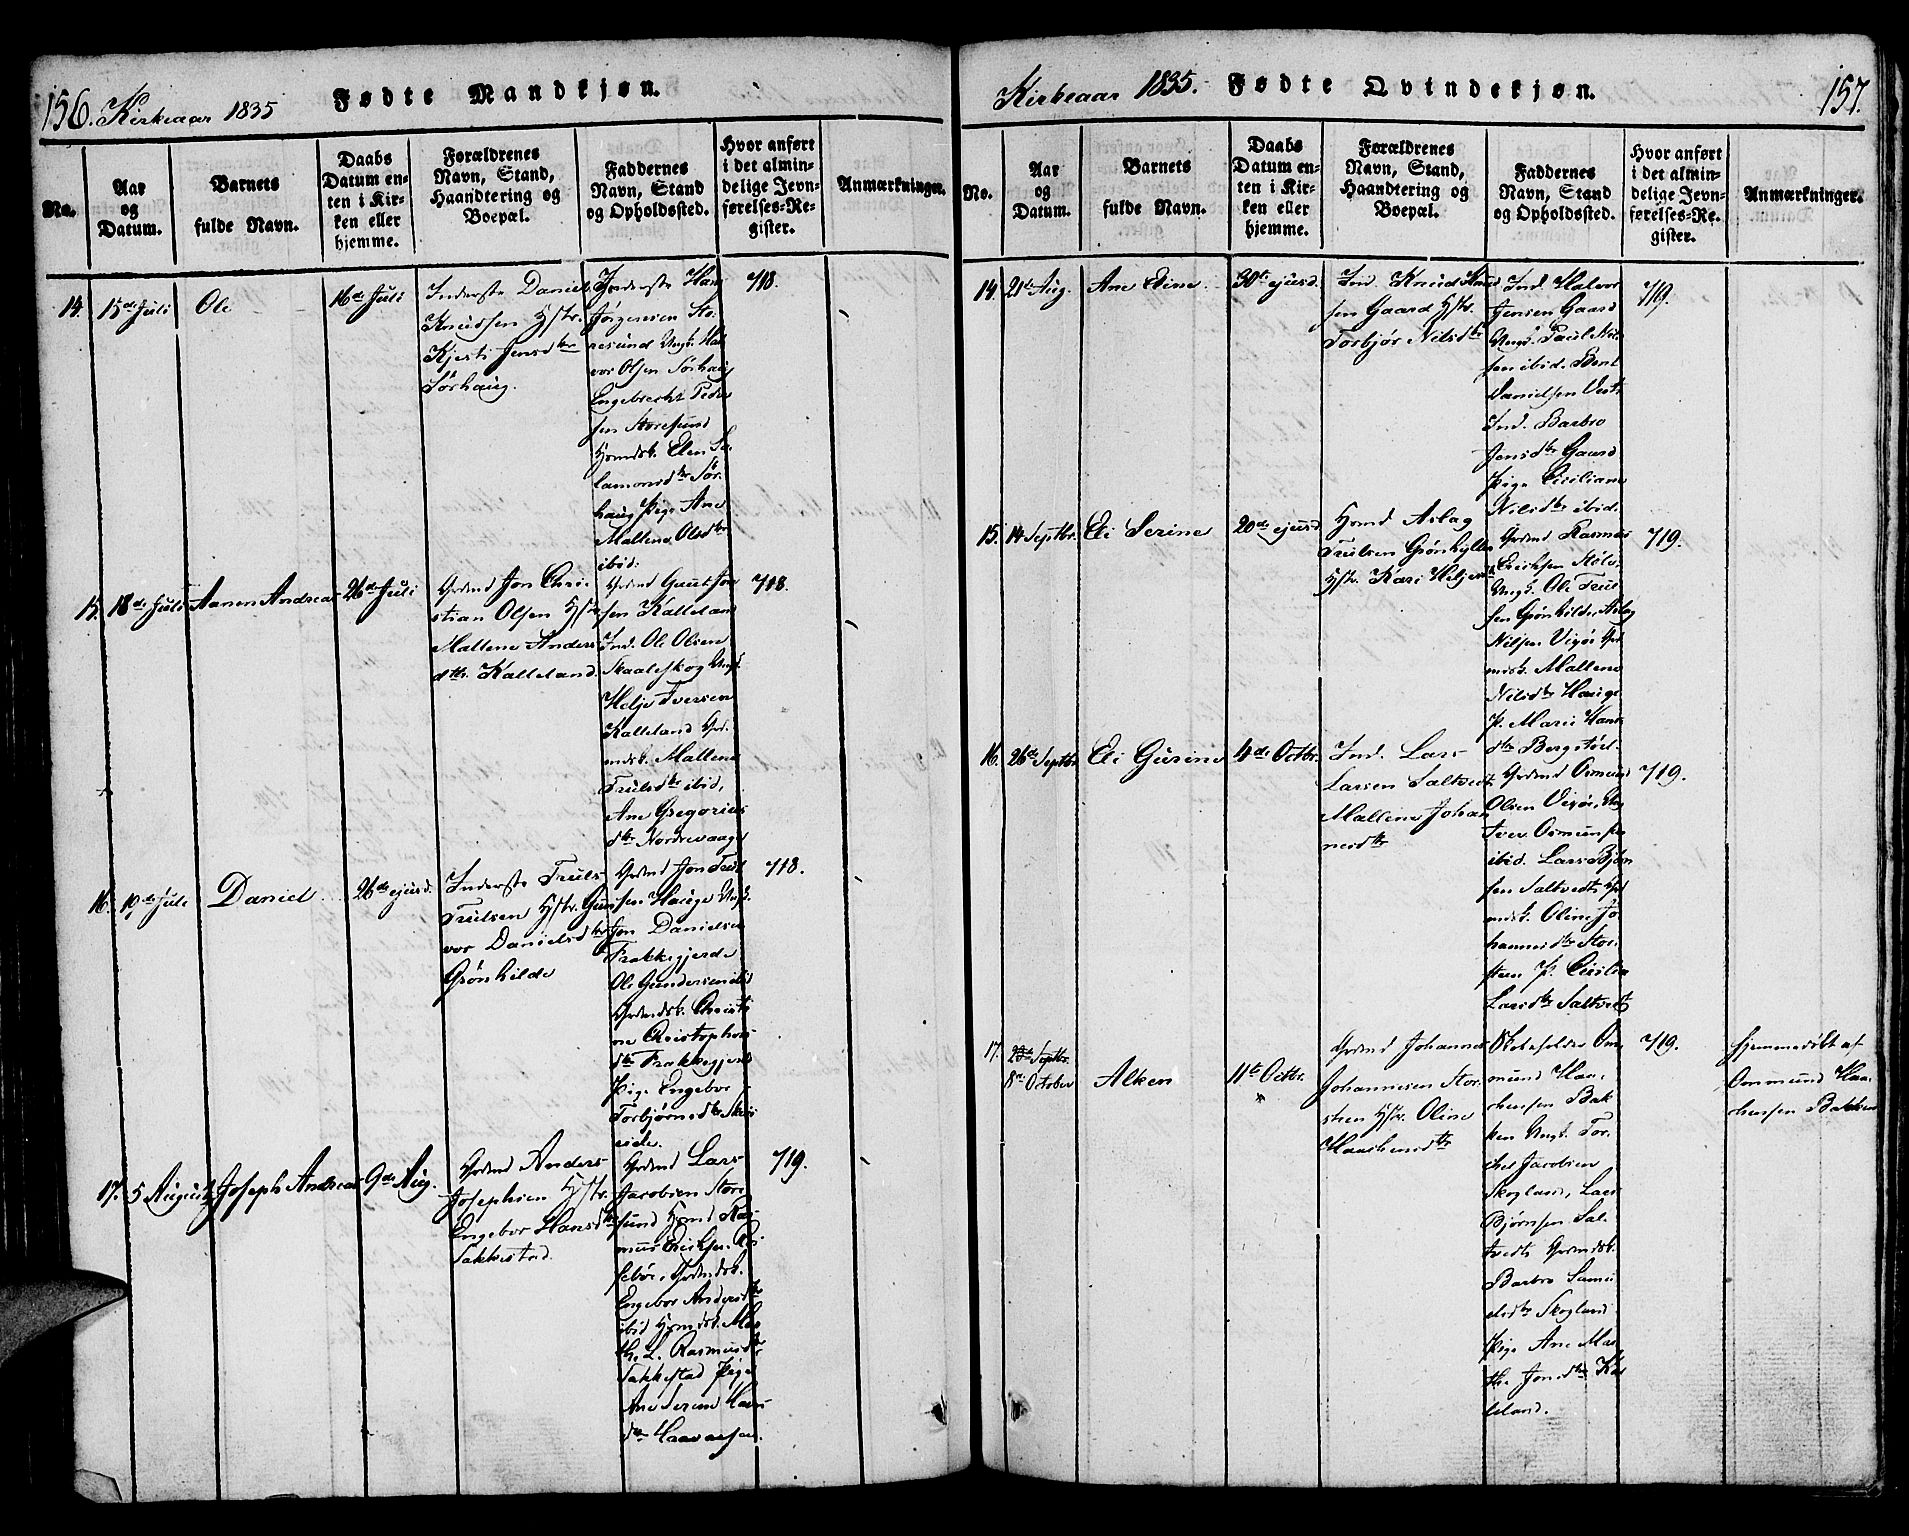 156. Kirkeaar 1835 Fødte Mandkjøn.
No.
Aar
og
Datum.
Barnets
fulde Navn.
Daabs
Datum en-
ten i Kir-
ken eller
hjemme.
Forældrenes
Navn, Stand,
Haandtering og
Boepæl.
Faddernes
Navn, Stand
og Opholdssted.
Hvor anført
i det almin-
delige Jevn-
førelses-Re-
gister.
Anmærkninger.
14.
15de Juli
Ole
16de Juli
Inderste Daniel
Knudsen Hstr.
Kjersti Jensdtr
Sørhaug.
Inderste Hans
Jørgensen Sto-
resund Ungk. Hal-
vor Olsen Sørhaug
Engebrecht Peder-
sen Storesund
Hsmdsk. Elen Sa-
lamonsdtr Sør-
haug Pige Ane
Mallene Olsdtr
ibid.
718.
15.
18de Juli
Aanen Andreas
26de Juli
Grdmd Jon Chri-
stian Olsen Hstr
Mallene Anders
dtr. Kalleland
Grdmd Gaut Jon-
sen Kalleland
Ind. Ole Olsen
Skaaleskog Ungk.
Helje Iversen
Kalleland Grd.
mdsk. Mallene
Trulsdtr ibid,
Ane Gregorius
dtr Nordrevaage
718.
16.
19de Juli
Daniel
26de ejusd.
Inderste Truls
Trulsen Hstr. Gun-
vor Danielsdtr
Grønhilde
Grdmd Jon Trul-
sen Hauge Ungk.
Jon Danielsen
Frakkegjerde
Ole Gundersen ibid
Grdmdsk. Christi-
ne Christophers
dtr Frakkegjerde
Pige Engebor
Torbjørnsdtr
eide.
718.
17.
5 August
Joseph Andreas
9de Aug.
Grdmd Anders
Josephsen Hstr.
Engebor Hansdtr
Sakkestad.
Grdmd Lars
Jacobsen Store
sund Hsmd Ras-
mus Ericksen
Grdmdsk.
Engebor Andersdtr
ibid Hsmdsk. Mar-
the L. Rasmusdtr
Sakkestad Pige
Ane Serine Hans
dtr
719.
Kirkeaar 1835. Fødte Qvindekjøn. 157.
No.
Aar
og
Datum.
Barnets
fulde Navn.
Daabs
Datum en-
ten i Kir-
ken eller
hjemme.
Forældrenes
Navn, Stand,
Haandtering og
Boepæl.
Faddernes
Navn, Stand
og Opholdssted.
Hvor anført
i det almin-
delige Jevn-
førelses-Re-
gister.
Anmærkninger.
14.
21de Aug.
Ane Eline
30te ejusd.
Ind. Knud Knud-
sen Gaard Hstr.
Torbjør Nilsdtr
Ind. Halvor
Jensen Gaard
Ungk. Paul Nil-
sen ibid. Bent
Danielsen Vestr
Ind. Barbro
Jensdtr Gaard
Pige Ciciliane
Nilsdtr ibid.
719.
15.
14 Septbr.
Eli Serine
20de ejusd
Hsmd Aslag
Trulsen Grønhylle
Hstr. Kari Heljesdtr
Grdmd Rasmus
Ericksen
Ungk. Ole Trul-
sen Grønhilde, Aslag
Nilsen Grd
mdsk. Mallene
Nilsdtr Hauge
P. Mari Hans
dtr Bergstøl.
719.
16.
26de Septbr
Eli Gurine
4de Octbr.
Ind. Lars
Larsen Saltvedt
Mallene Johan
nesdtr
Grdmd Osmund
Olsen
Iver Osmunsen
ibid. Lars Bjørn
sen Saltvedt, Grd
mdsk. Oline Jo
hannesdtr Stor-
steen P. Cicilia
Larsdtr Saltvedt
719.
17.
23de Septbr.
8de October
Alken
11te Octbr.
Grdmd Johannes
Johannesen Stor-
steen Hstr. Oline
Haachensdtr
Skoleholder Om-
mund Haa-
chensen Bak-
ken Ungk. Tor-
chel Jacobsen
Skogland, Lars
Bjørnsen Sal-
tvedt Grdmdsk.
Barbro Samu-
elsdtr Skogland
Pige Ane Mar-
the Jonsdtr Kal
leland.
719.
Hjemmedøbt af
Ommund Haa-
chensen Bakken